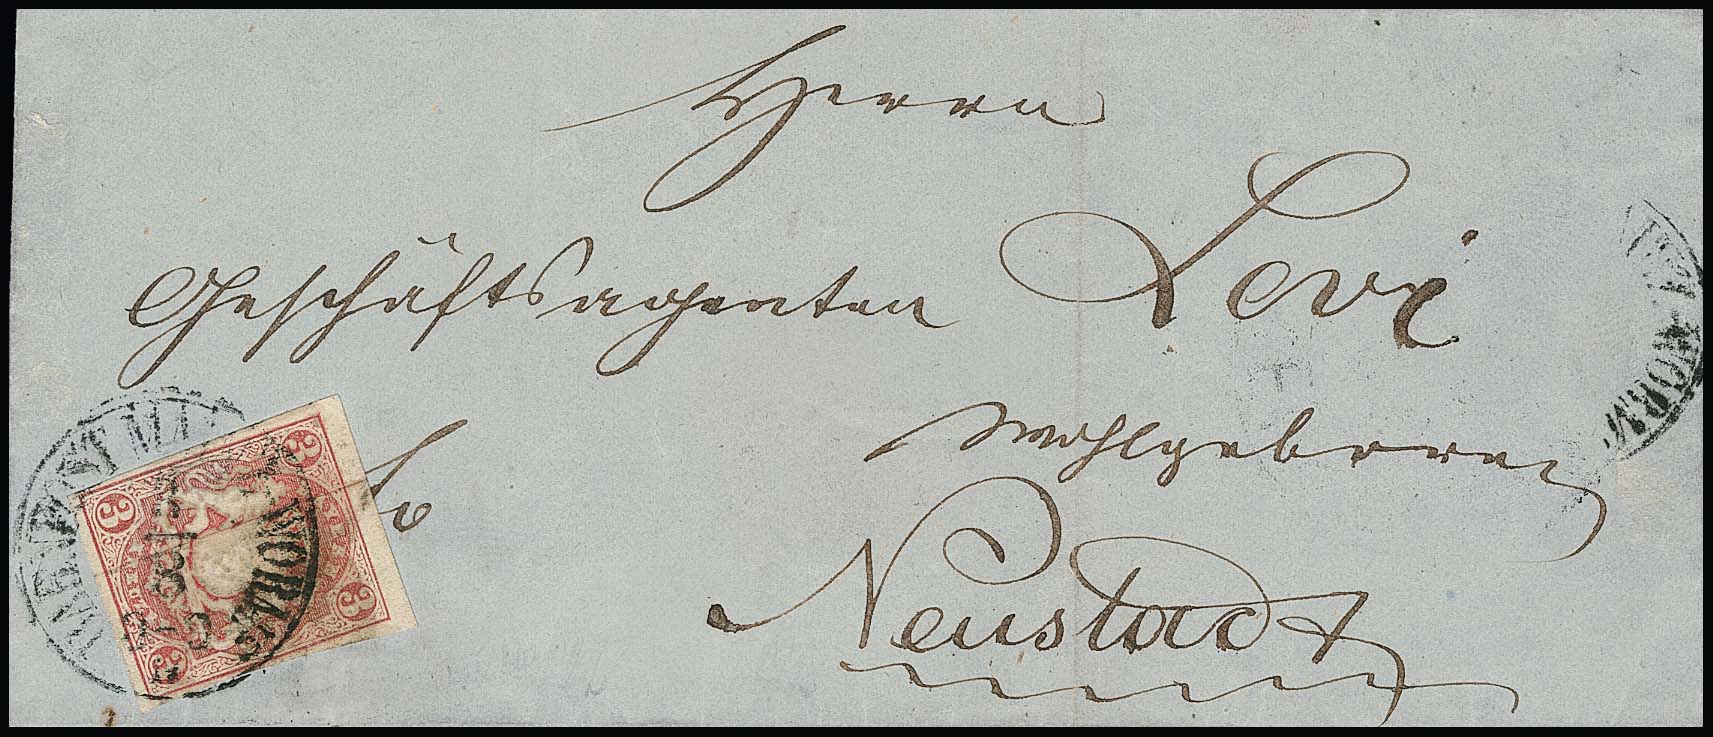 Herrn
Geschäftsagenten Levi
Wohlgeboren
Neustadt
fr
3
3
3
3
WORMS
WORM